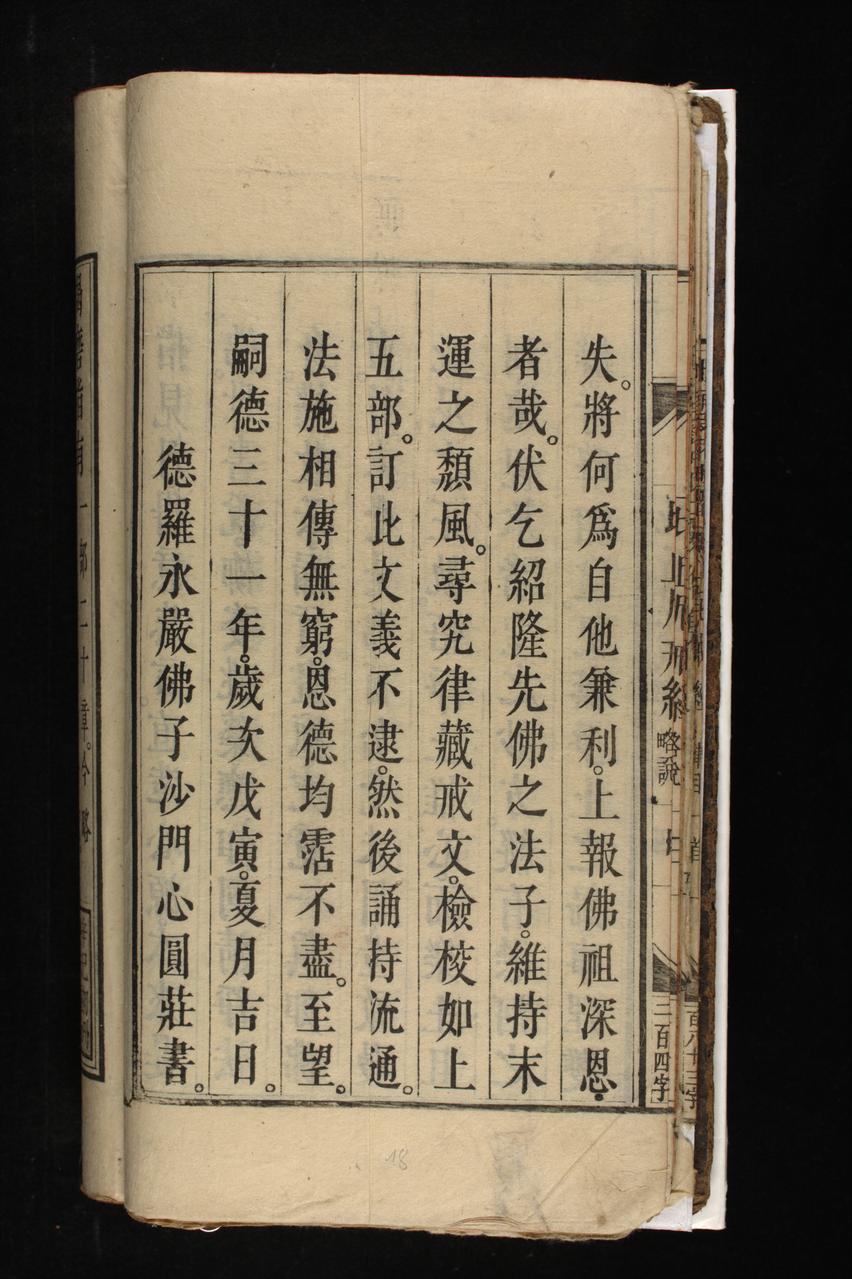 略說
三百四字
失。將何爲自他兼利。上報佛祖深恩。
者哉。伏乞紹隆先佛之法子。維持末
運之頹風。尋究律藏戒文。檢校如上
五部。訂此文義不逮。然後誦持流通。
法施相傳無窮。恩德均霑不盡。至望。
嗣德三十一年。歲次戊寅。夏月吉日。
德羅永嚴佛子沙門心圓莊書。
一部二十章。今略
18